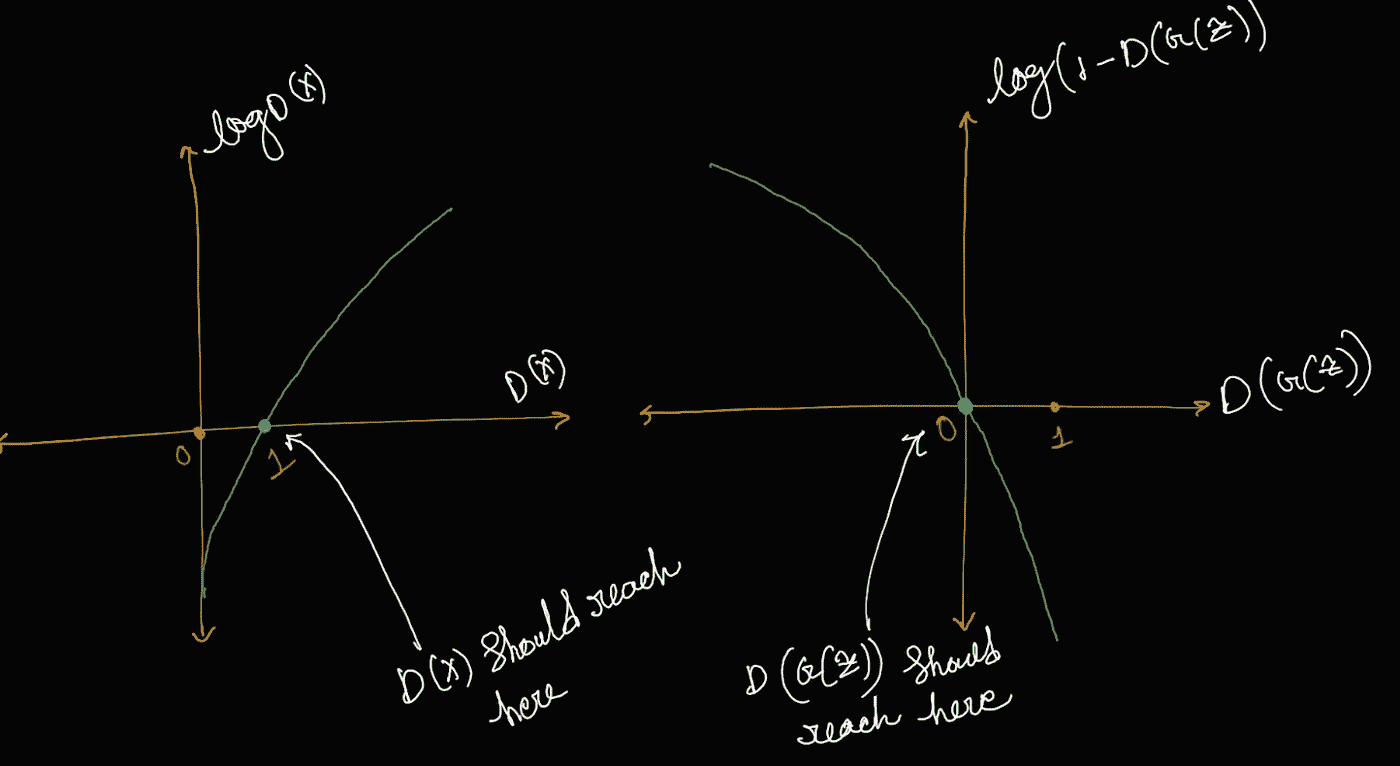 log D(x)
D(x)
0
1
D(x) should reach
here
log(1-D(G(z))
D(G(z))
0
1
D(G(z)) should
reach here